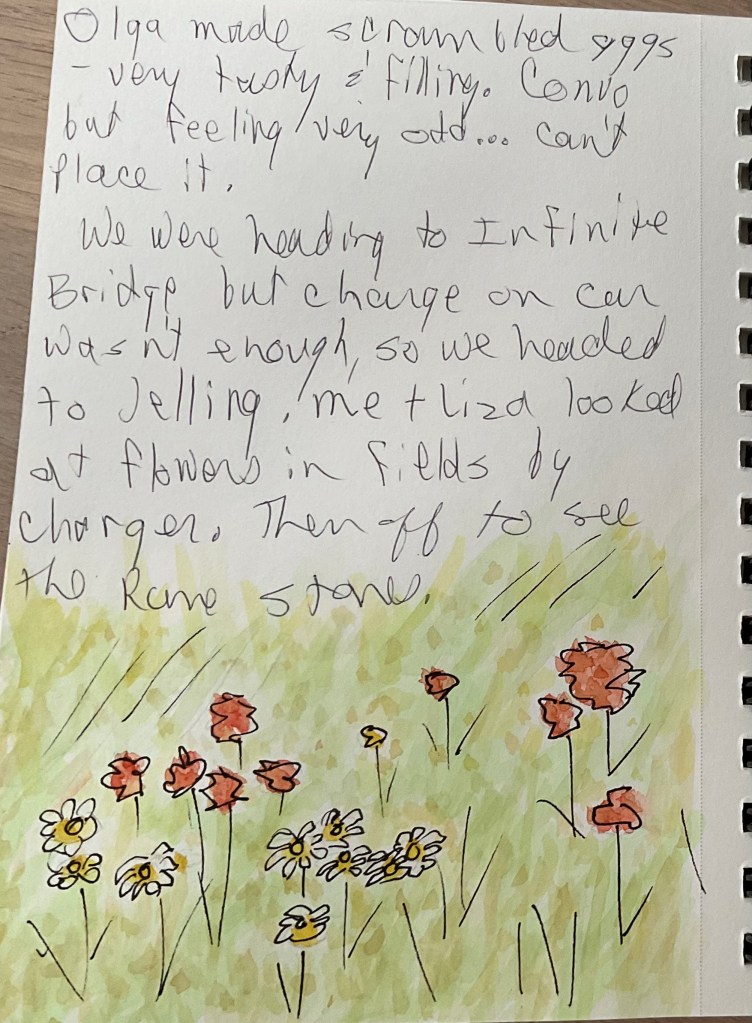 Olga made scrambled eggs
- very tasty & filling. Convo
but feeling very odd... can't
place it.
We were heading to Infinite
Bridge but charge on car
wasn't enough, so we headed
to Jelling, me + Liza looked
at flowers in fields by
charger. Then off to see
the Rune stones.